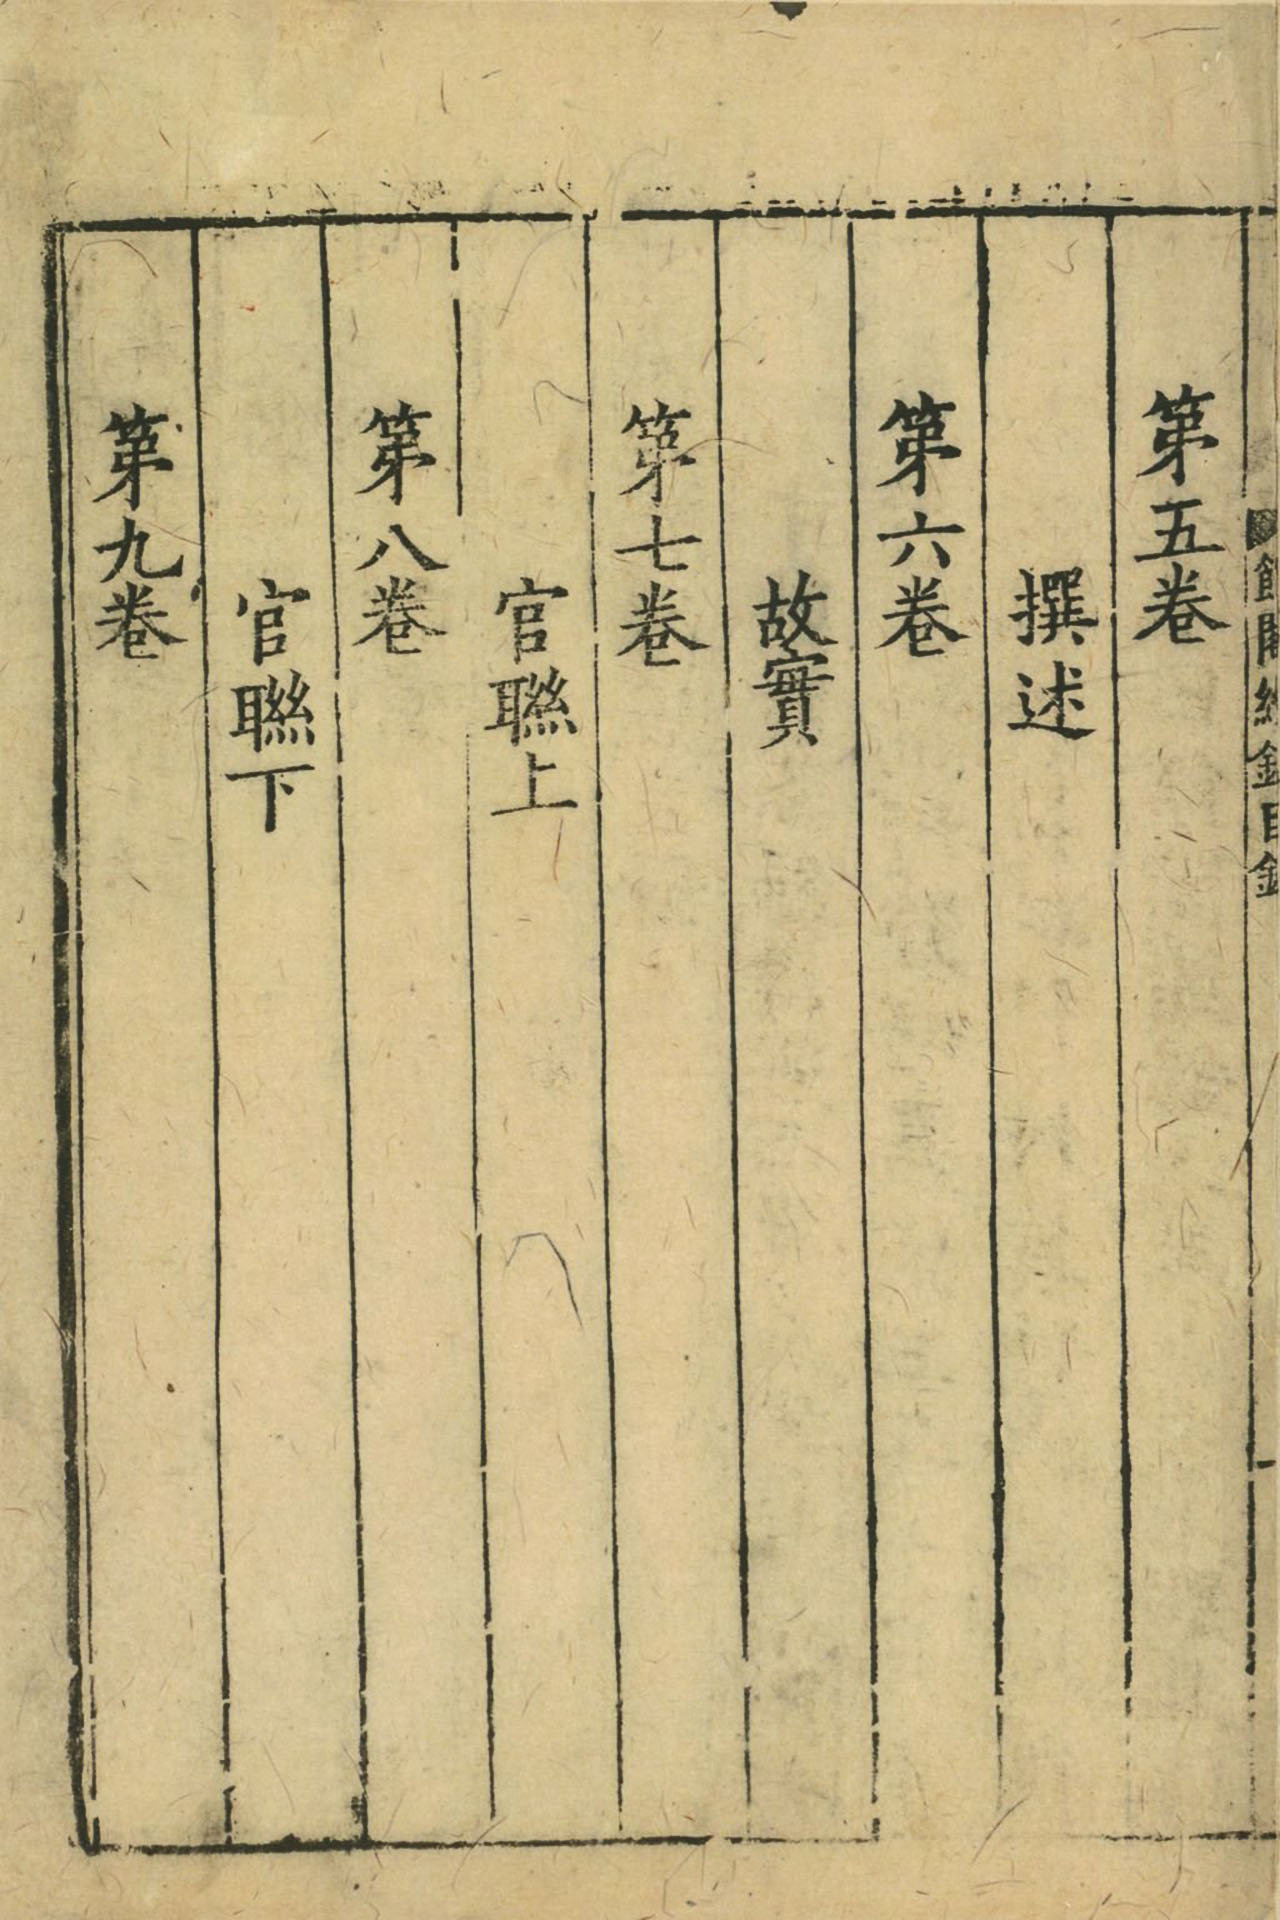 館閣續錄目錄
第五卷
撰述
第六卷
故實
第七卷
官聯上
第八卷
官聯下
第九卷